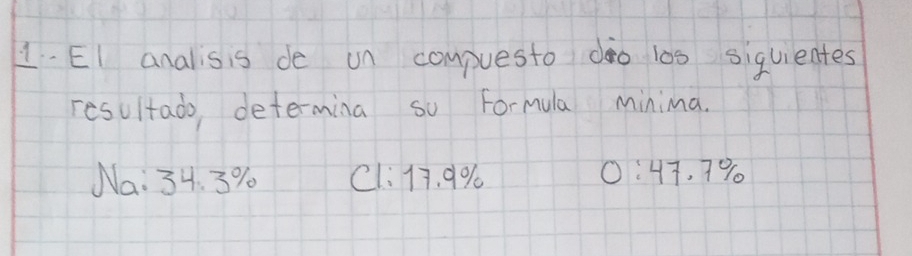 1.- El analisis de un compuesto dio los siguientes
resultado, determina su formula minima.
Na: 34.3% Cl: 17.9% O: 47.7%